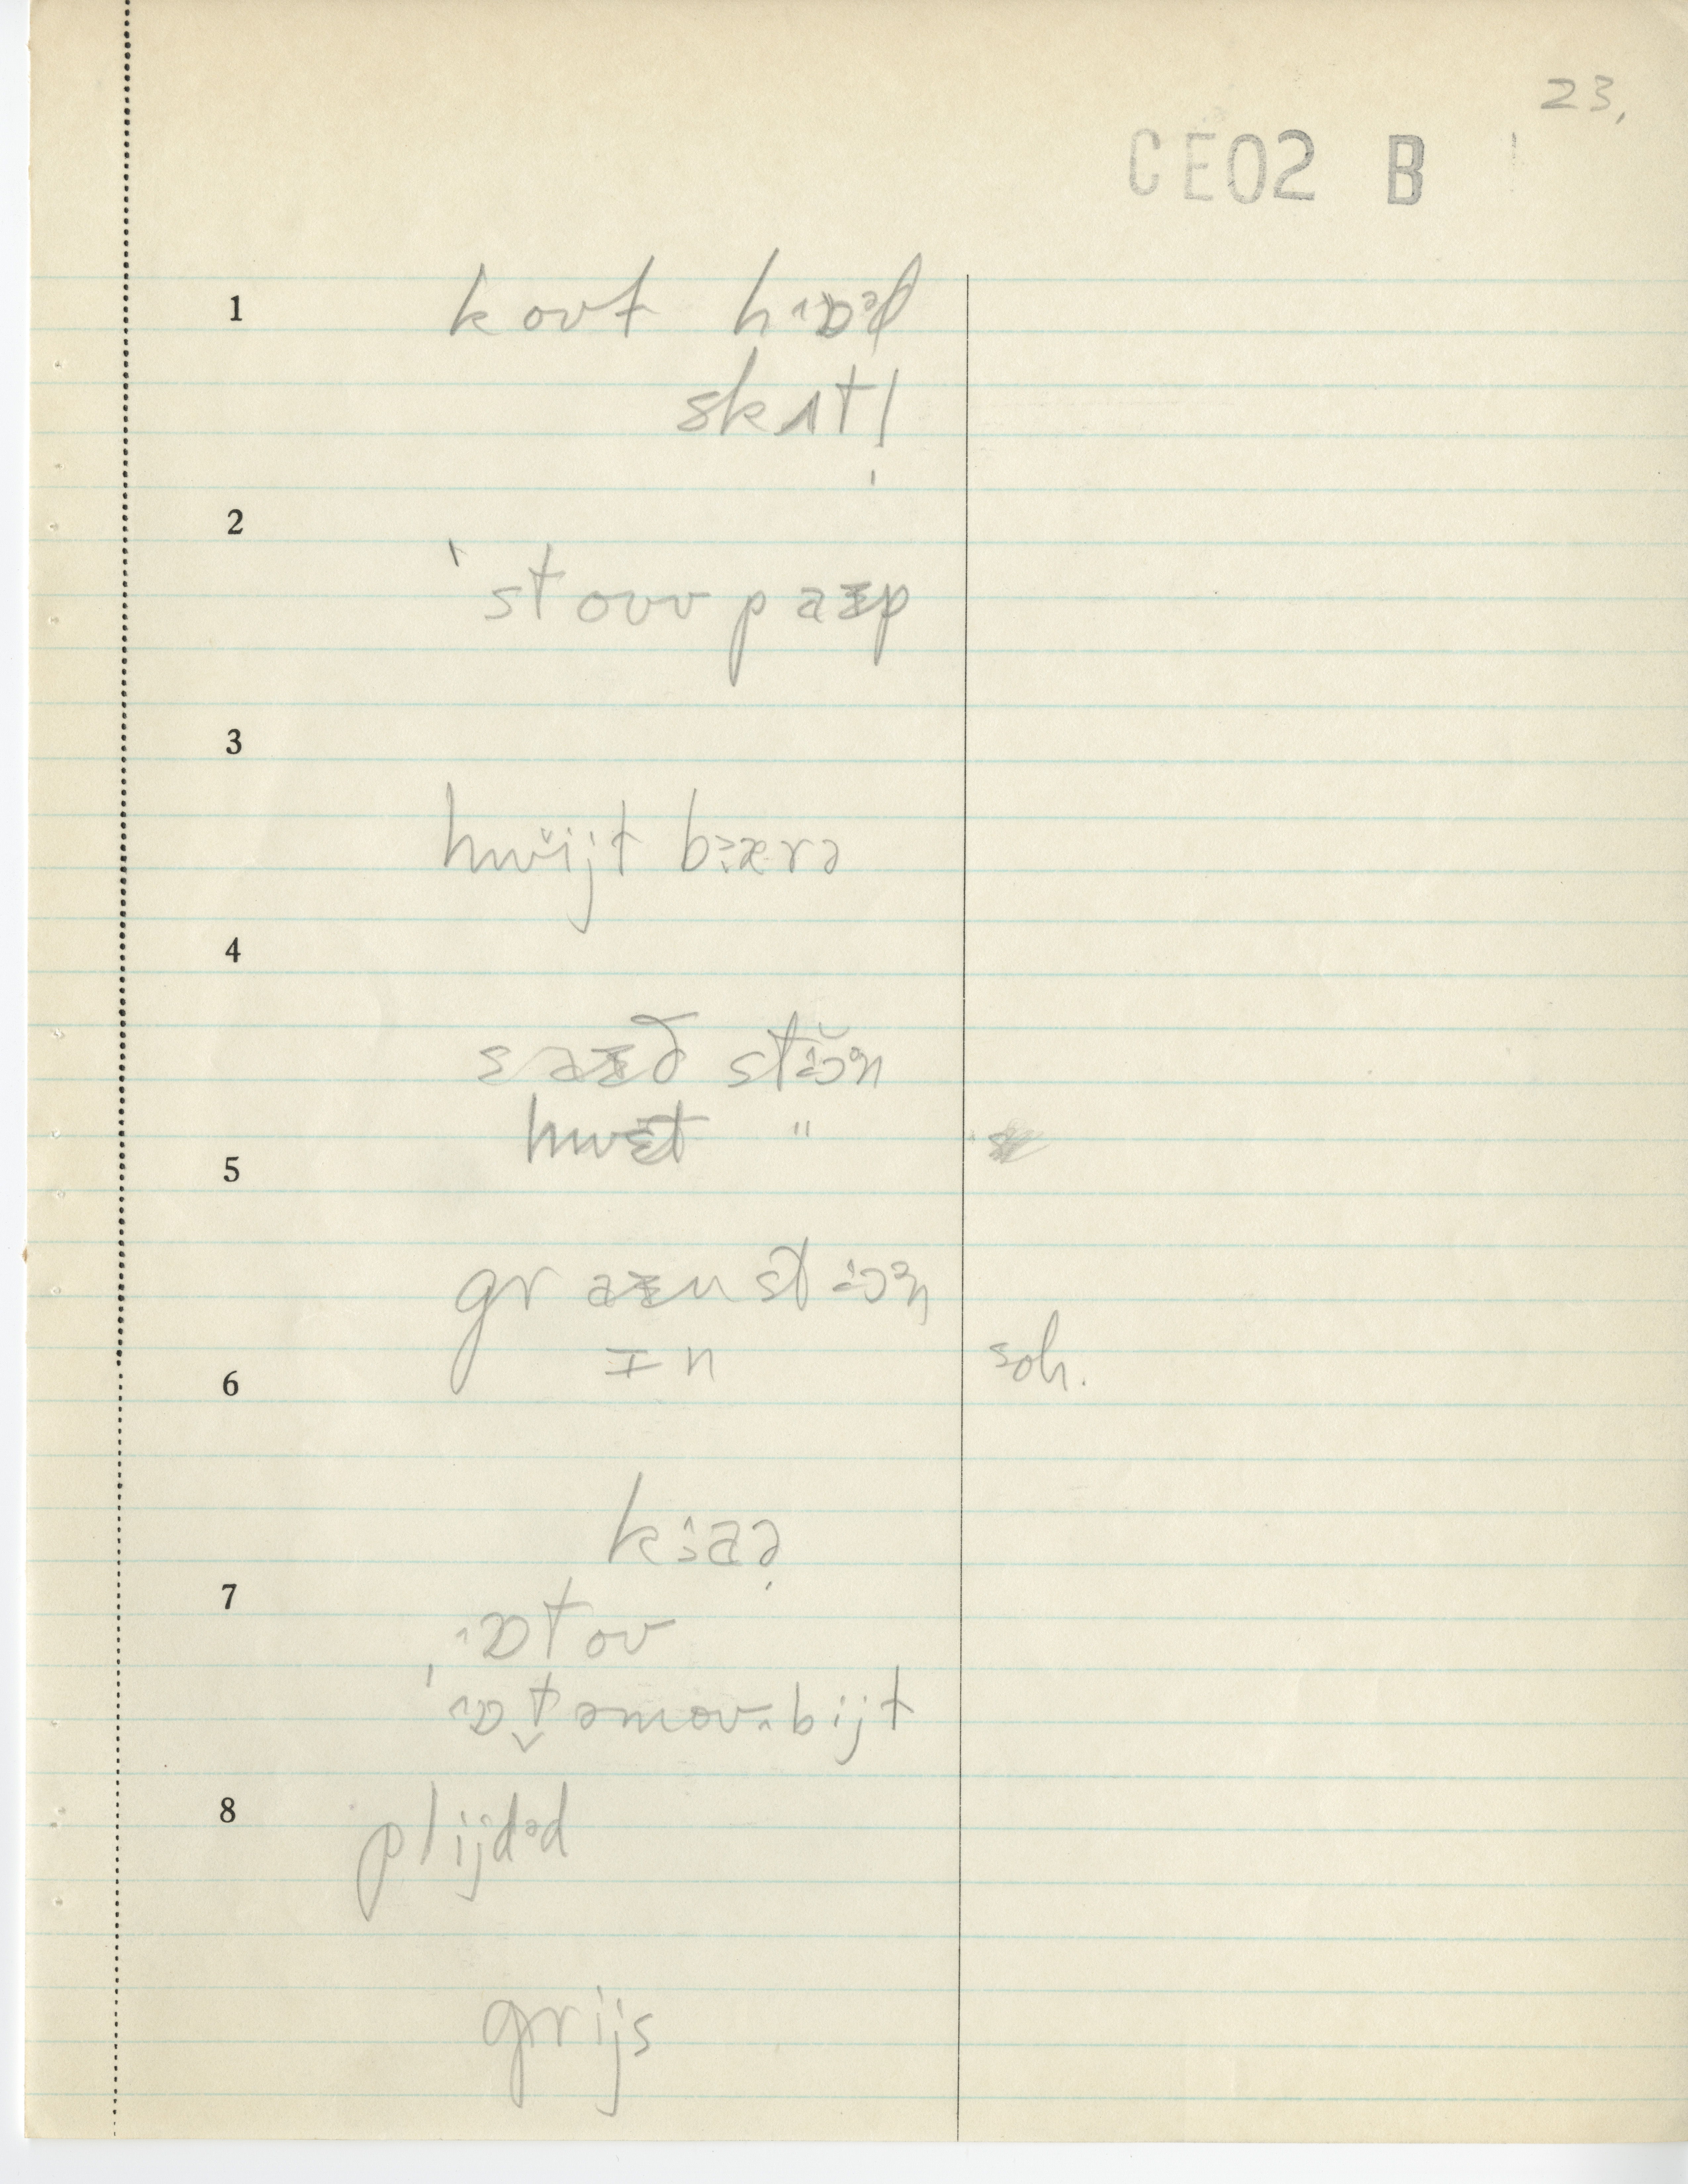 23.
CE02 B
1
koʊt hɒəl
skʌt!
2
ˈstoʊvpaɪp
3
hwijt bærə
4
saɪð stɔən
hwɛt "
5
graɪnstɔən
ɪn
soh.
6
kɜaə
7
ɒtoʊ
ɒtəmoʊbijt
8
plijdəd
grijs